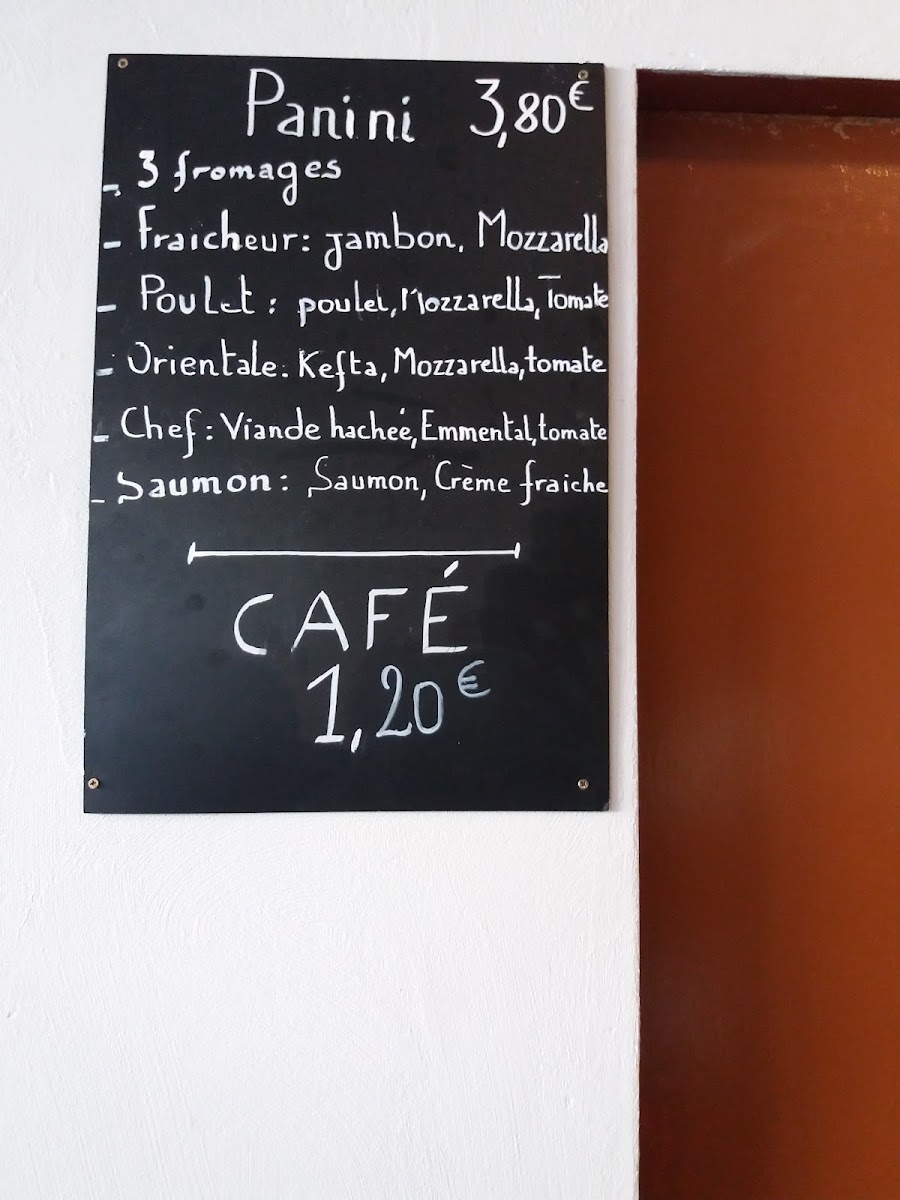 Panini 3,80€
- 3 fromages
- Fraicheur: jambon, Mozzarella
- Poulet : poulet, Mozzarella, Tomate
- Orientale: Kefta, Mozzarella, tomate
- Chef: Viande hachée, Emmental, tomate
- Saumon: Saumon, Crème fraiche
CAFÉ
1,20€